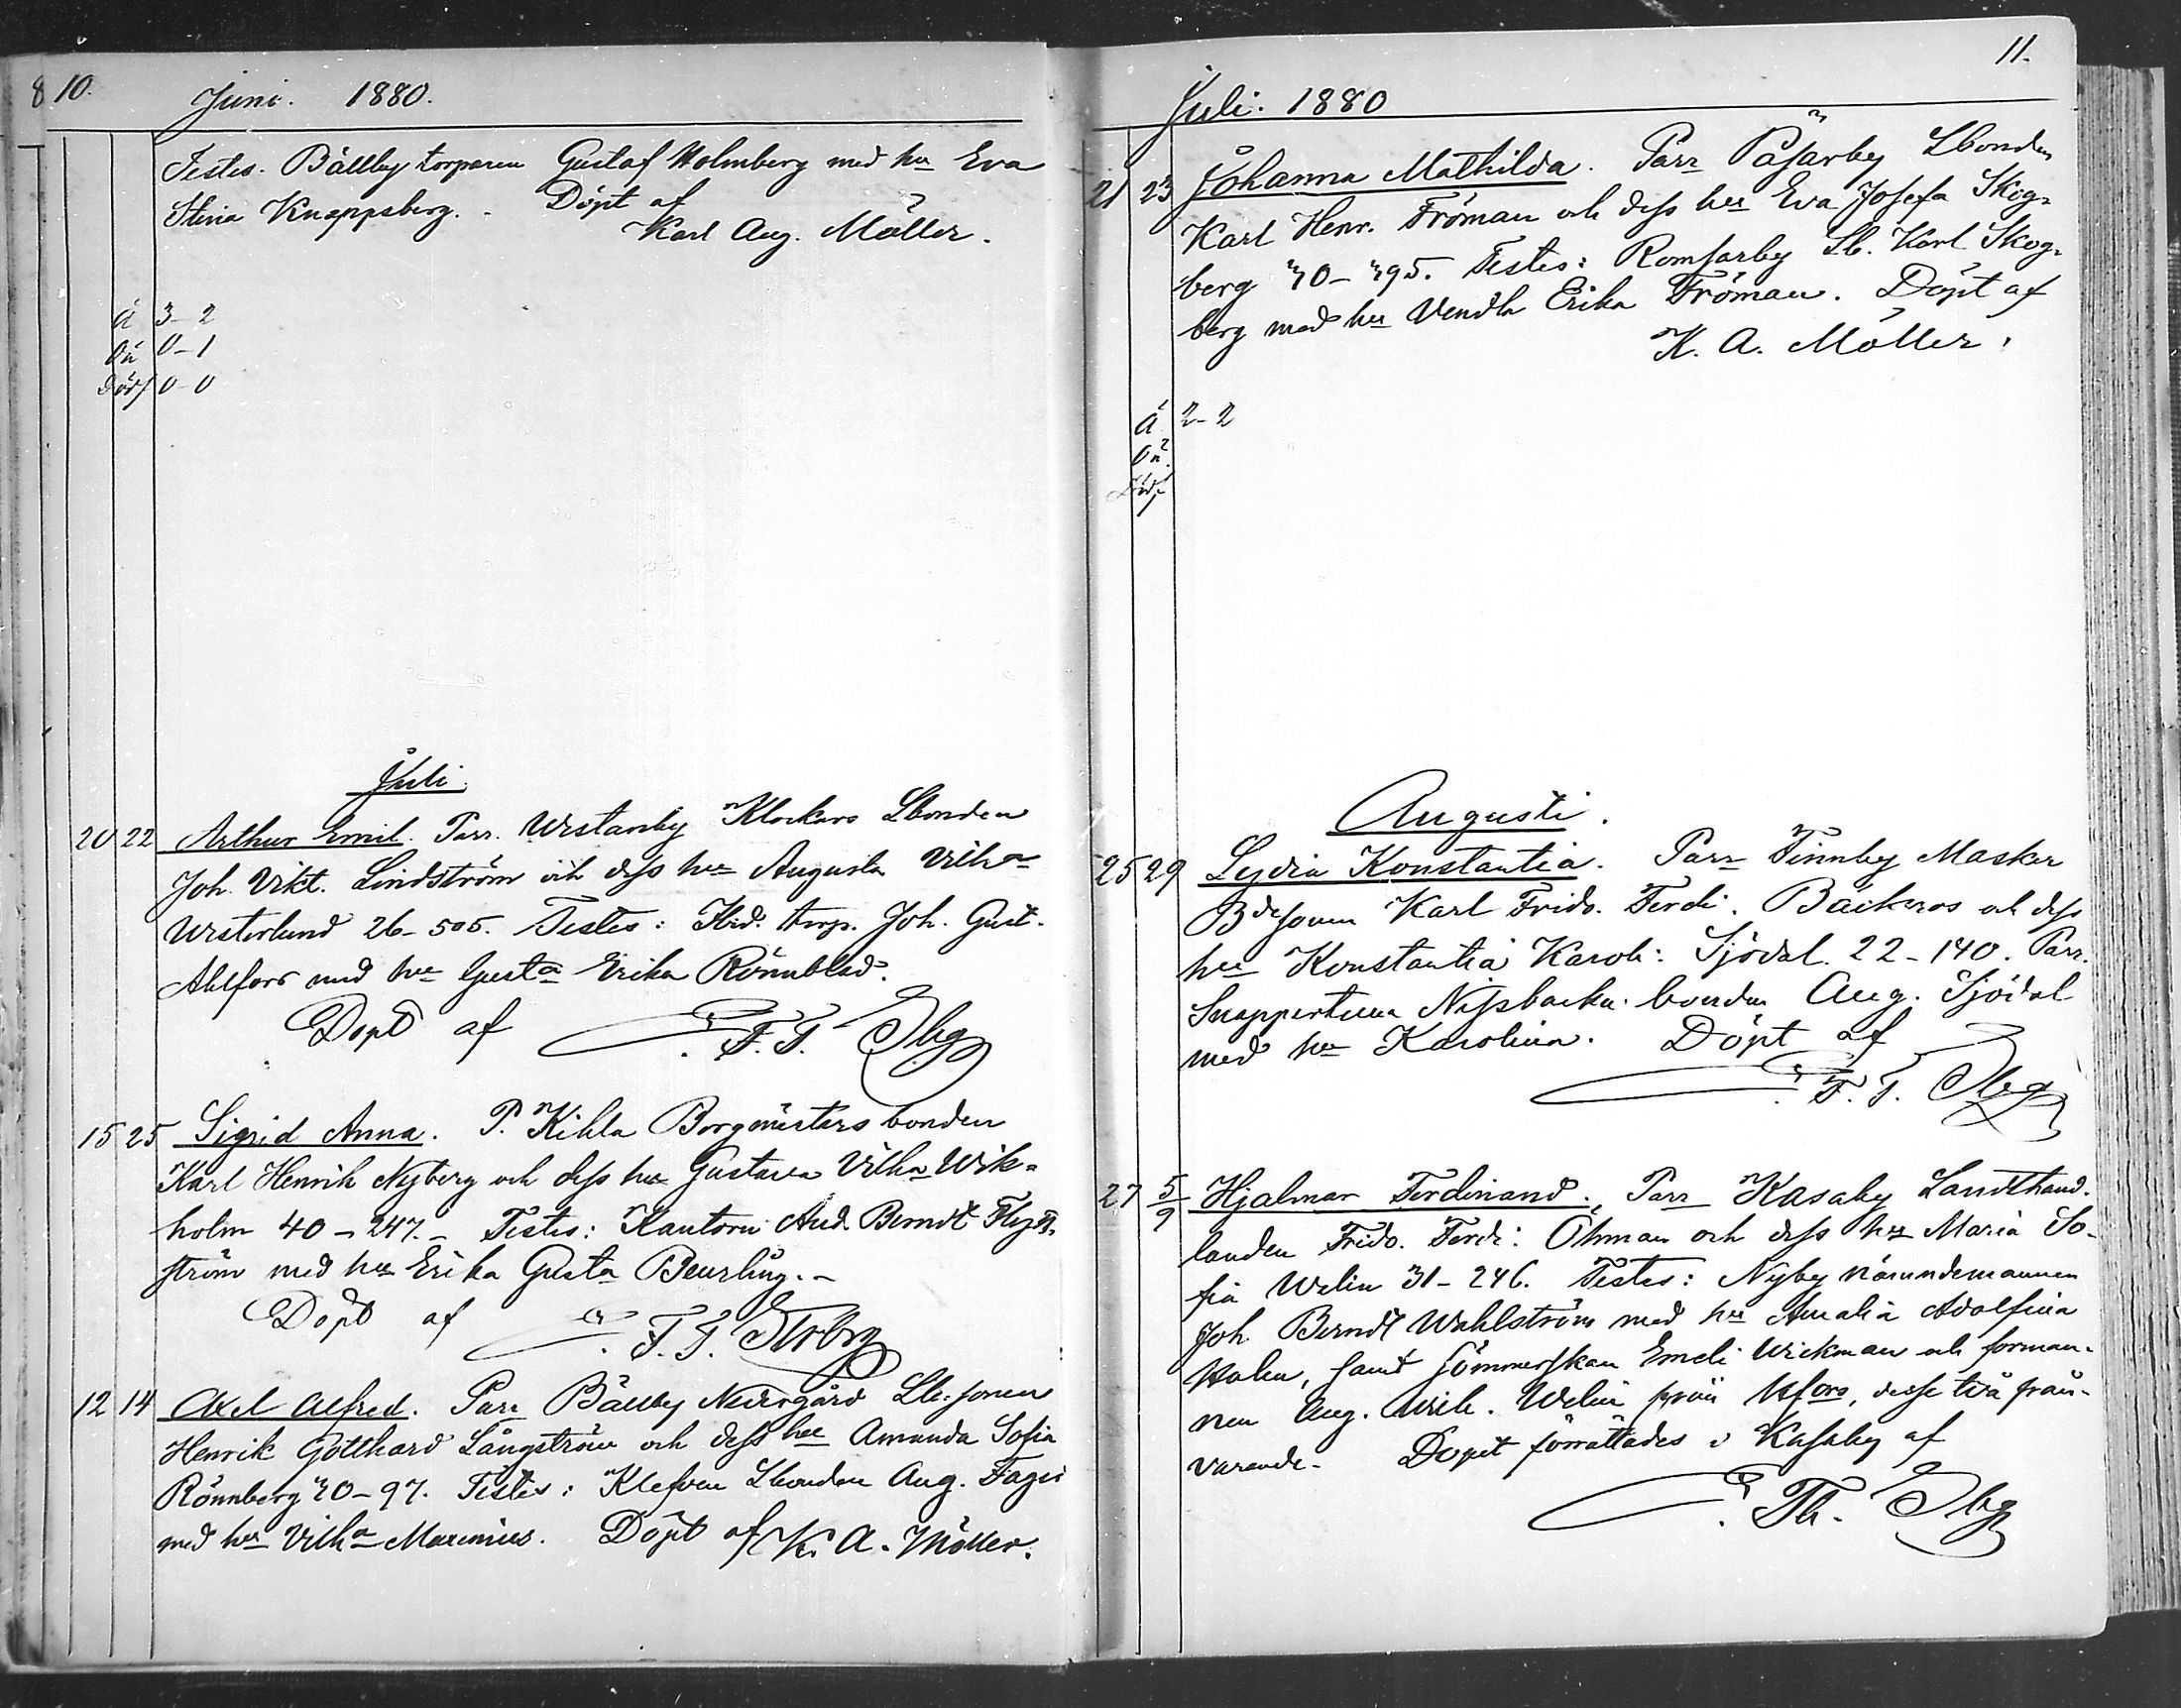 8 10.
Juni. 1880.
Testes. Bällby torparen Gustaf Holmberg med hu Eva
Stina Knappsberg. - Döpt af
Karl Aug. Möller.
Ä 3-2
Oä 0-1
Dödf 0-0
Juli.
20 22 Arthur Emil. Parr. Westanby Klockars Lbonden
Joh. Vikt. Lindström och dess hu Augusta Vilha
Westerlund 26-505. Testes: torp. Joh. Gust.
Ahlfors med hu Gusta Erika Rönnblad.
Döpt af F. T.
15 25 Sigrid Anna. P. Kihla Borgmästars bonden
Karl Henrik Nyberg och dess hu Gustava Vilha Wik-
holm 40-247. - Testes: Kantorn And. Berndt
ström med hu Erika Gusta Beurling. -
Döpt af F. T.
12 14 Axel Alfred. Parr Bällby Nedergård Lb: sonen
Henrik Gotthard Långström och dess hu Amanda Sofia
Rönnberg 40-97. Testes: Klefven Lbonden Aug.
med hu Vilha Marenius. Döpt af K. A. Möller.
11.
Juli. 1880
21 23 Johanna Mathilda. Parr Påsarby Lbonden
Karl Henr. Fröman och dess hu Eva Josefa Skog-
berg 40-395. Testes: Romsarby Lb. Karl Skog-
berg med hu Vendla Erika Fröman. Döpt af
K. A. Möller.
Ä 2-2
Oä.
Dödf
Augusti.
25 29 Lydia Konstantia. Parr Finnby Masker
Bdesonen Karl Frido. Ferdi. Bäckros och dess
hu Konstantia Karoli: Sjödal. 22-140. Parr.
Snappertuna Nissbacka bonden Aug. Sjödal
med hu Karolina. Döpt af
F. T.
27 5/9 Hjalmar Ferdinand. Parr Kasaby Landthand-
landen Frido. Ferdi: Öhman och dess hu Maria So-
fia Welin 31-246. Testes: Nyby nämndemannen
Joh. Berndt Wahlström med hu Amalia Adolfina
Holm, samt sömmerskan Emeli Wickman och forman-
nen Aug. Wilh. Welin från Hfors, desse två från-
varande. Dopet förrättades i Kasaby af
Th.